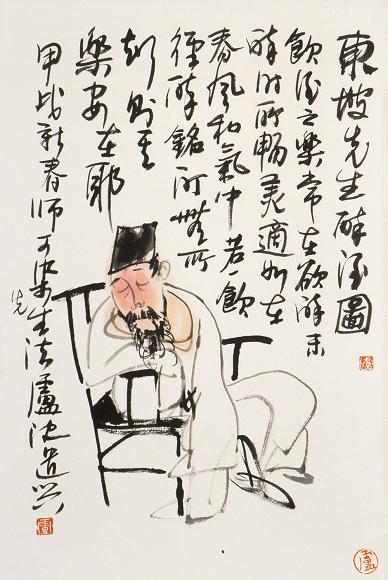 東坡先生醉酒圖
飲酒之樂常在欲醉未
醉時酣暢美適如在
春風和氣中若一飲
徑醉酩酊無所
知則其
樂安在耶
甲戌新春師可染生法廬沈道興
先